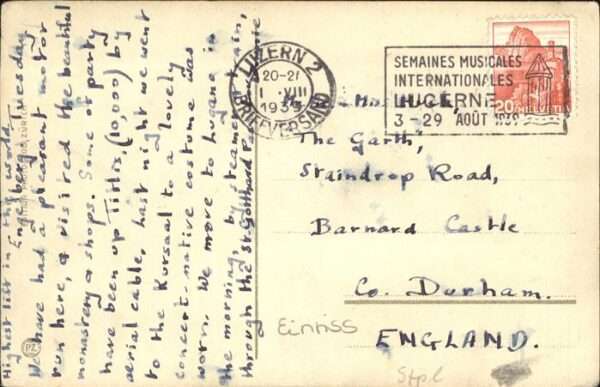 Highest lift in the world.
Engelberg. Tuesday
We have had a pleasant motor
run here, & visited the beautiful
monastery & shops. Some of party
have been up Titlis, (10,000) by
aerial cable, hast night we went
to the Kursaal to a lovely
concert - native costume was
worn. We move to Lugano in
the morning, by steamer & train,
through the St. Gotthard
LUZERN 2
20-21
1 · VIII
BRIEFVERSAND
SEMAINES MUSICALES
INTERNATIONALES
LUCERNE
3 - 29 AOÛT 1939
20 HELVETIA
The Garth,
Staindrop Road,
Barnard Castle
Co. Durham.
ENGLAND.
Einriss
Stpl
PZ